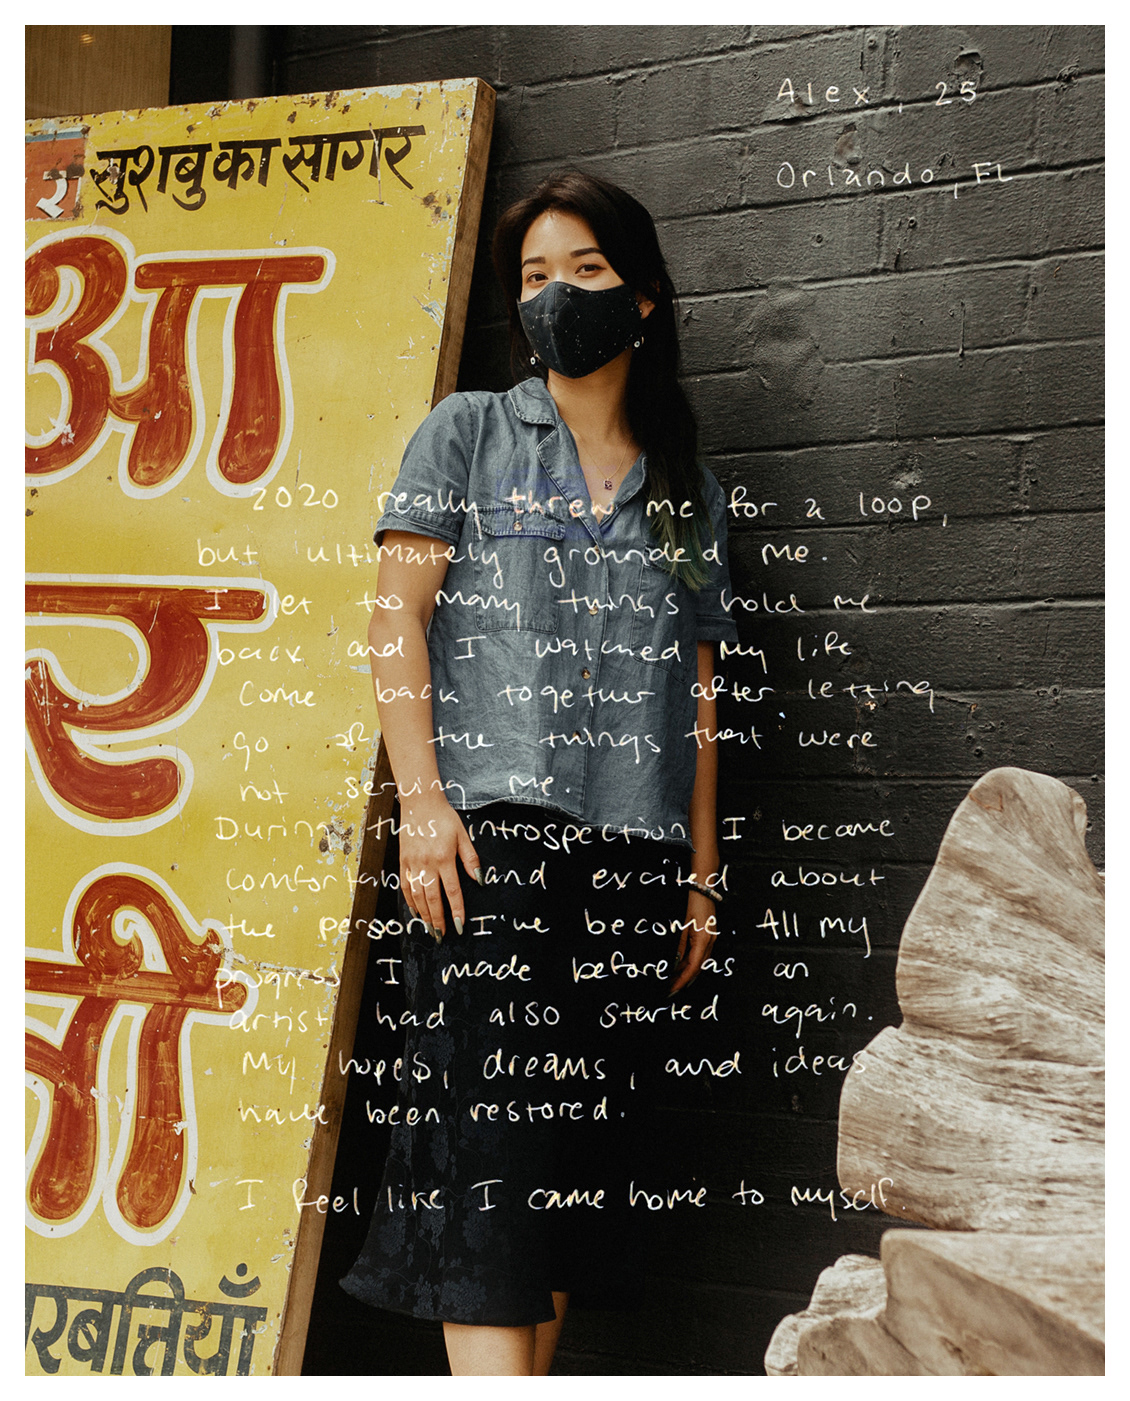 Alex, 25
Orlando, FL
खुशबु का सागर
आ
र
ती
रबत्तियाँ
2020 really threw me for a loop,
but ultimately grounded me.
I let too many things hold me
back and I watched my life
come back together after letting
go of the things that were
not serving me.
During this introspection I became
comfortable and excited about
the person I've become. All my
progress I made before as an
artist had also started again.
My hopes, dreams, and ideas
have been restored.
I feel like I came home to myself.